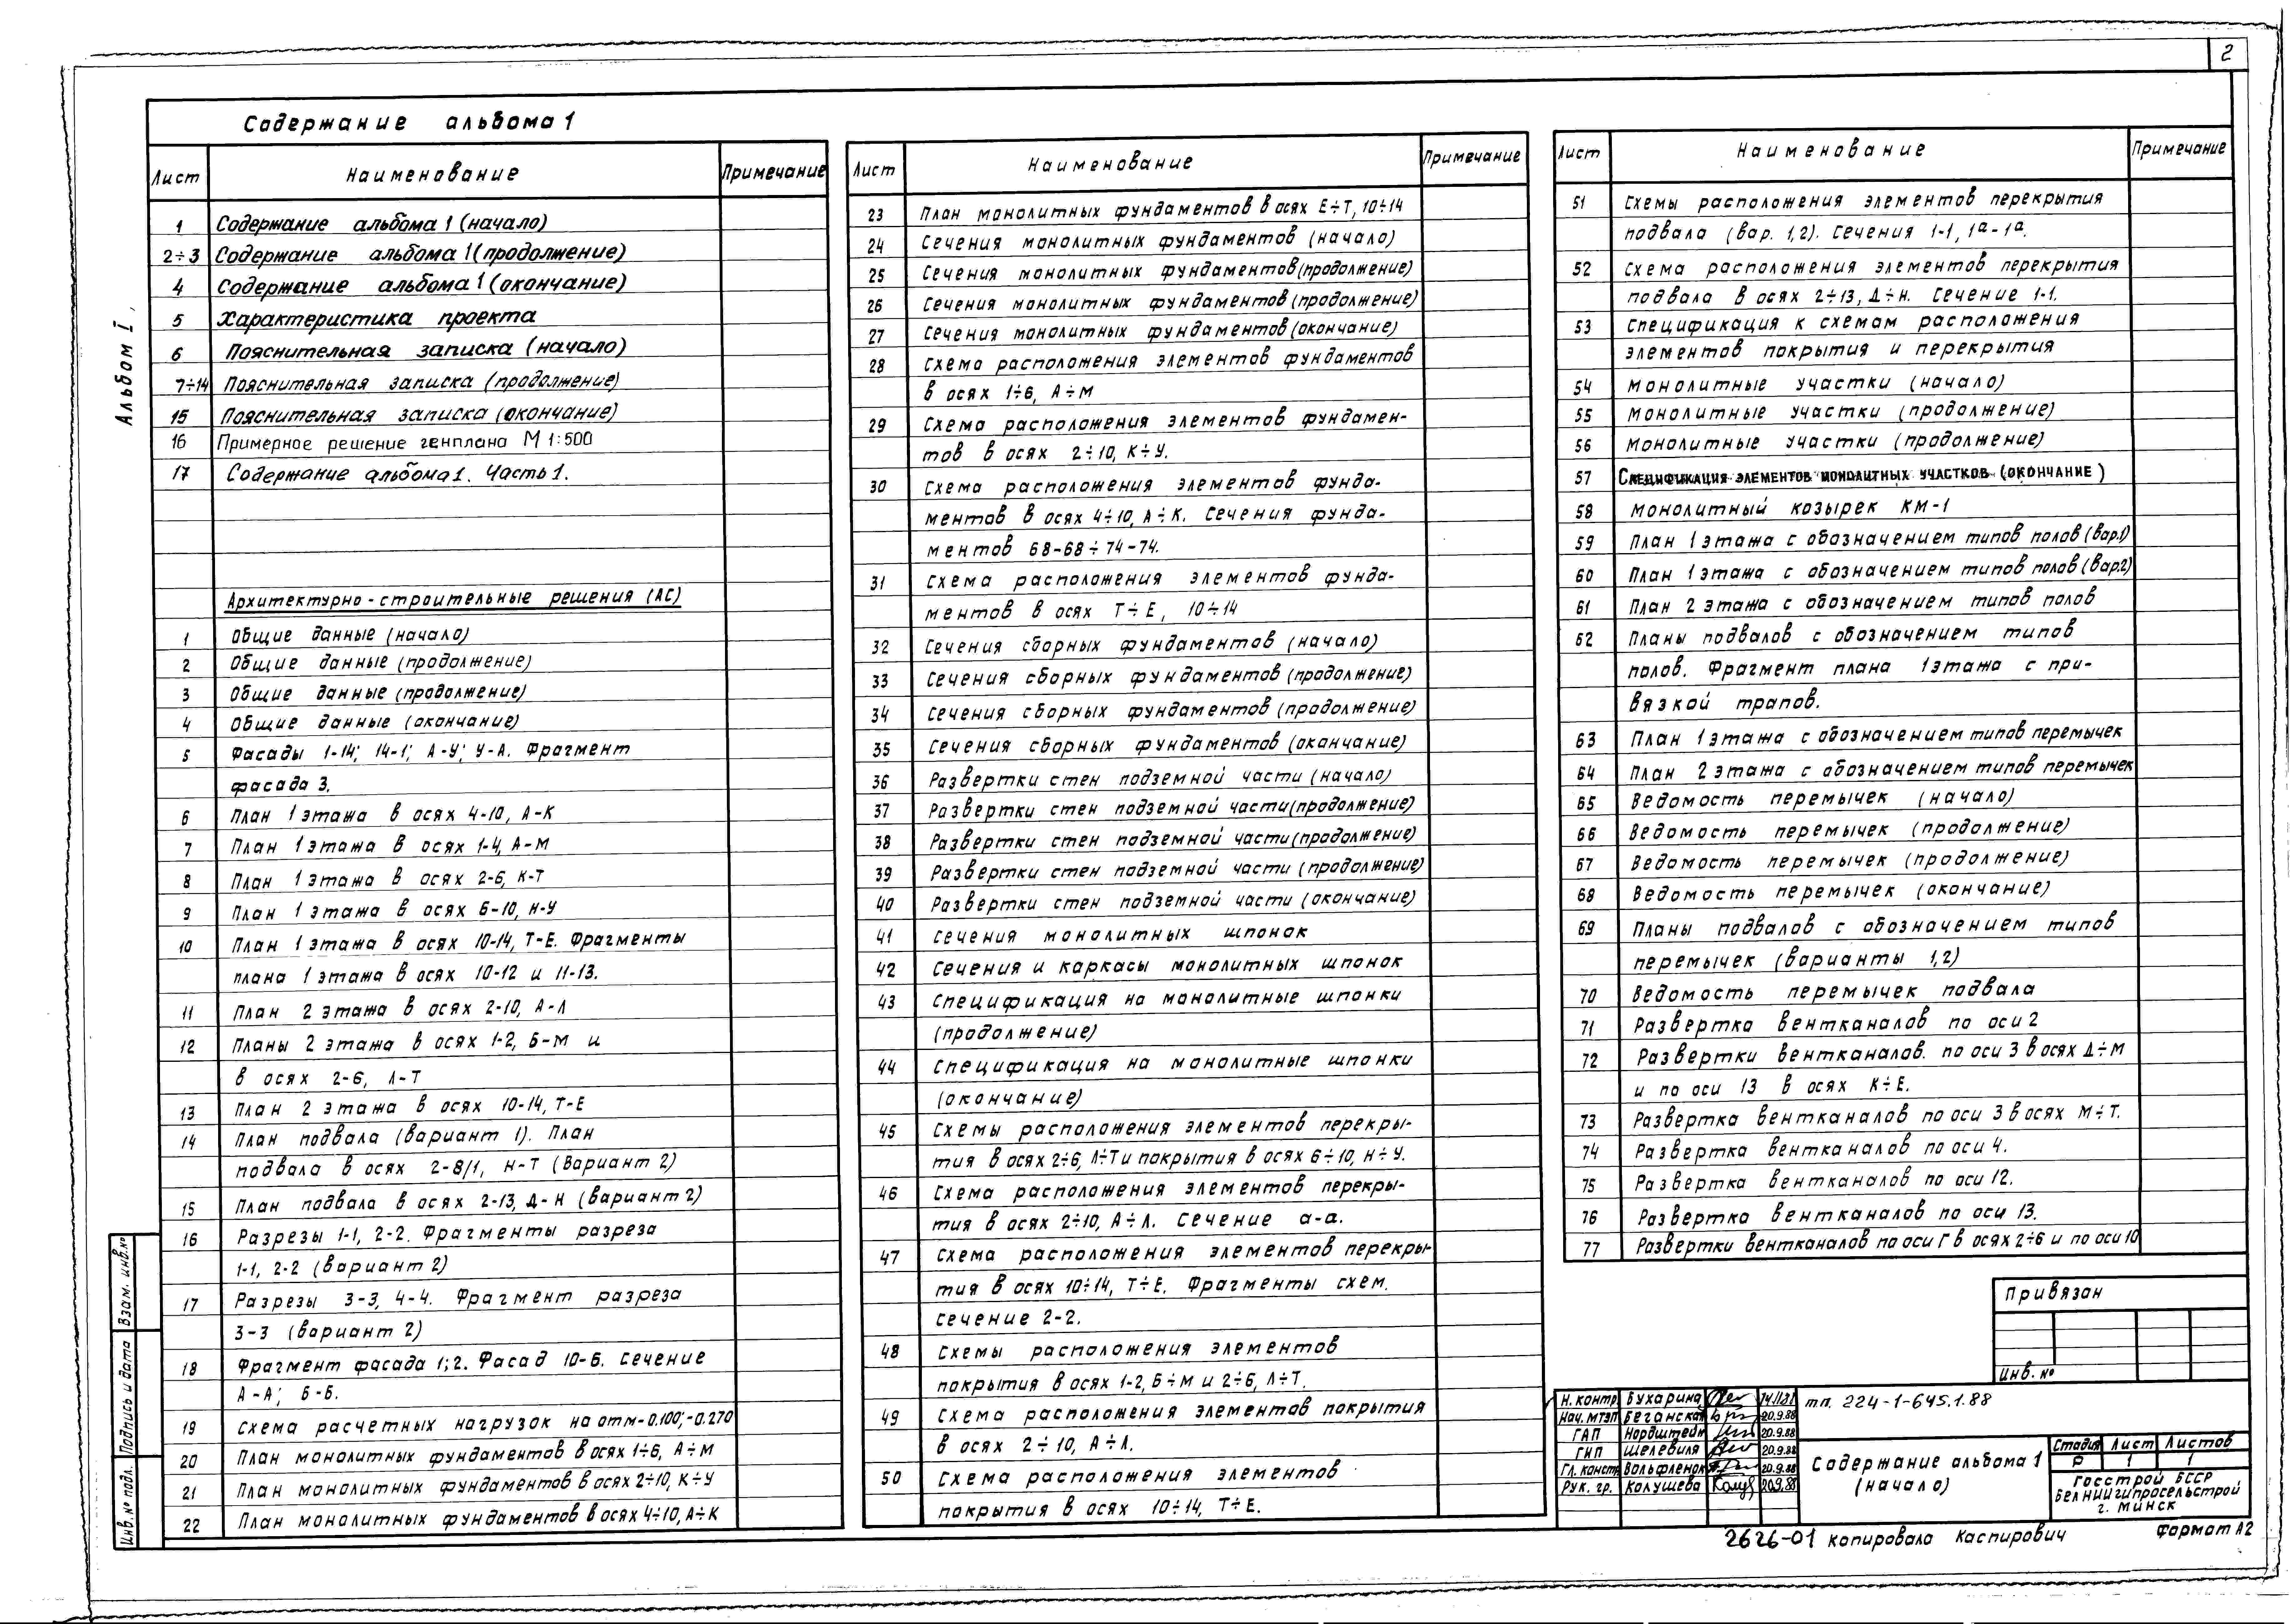 2
Альбом I,
Содержание альбома 1
Лист Наименование Примечание
1 Содержание альбома 1 (начало)
2÷3 Содержание альбома 1 (продолжение)
4 Содержание альбома 1 (окончание)
5 Характеристика проекта
6 Пояснительная записка (начало)
7÷14 Пояснительная записка (продолжение)
15 Пояснительная записка (окончание)
16 Примерное решение генплана М 1:500
17 Содержание альбома 1. Часть 1.
Архитектурно-строительные решения (АС)
1 Общие данные (начало)
2 Общие данные (продолжение)
3 Общие данные (продолжение)
4 Общие данные (окончание)
5 Фасады 1-14; 14-1; А-У; У-А. Фрагмент
фасада 3.
6 План 1 этажа в осях 4-10, А-К
7 План 1 этажа в осях 1-4, А-М
8 План 1 этажа в осях 2-6, К-Т
9 План 1 этажа в осях 6-10, Н-У
10 План 1 этажа в осях 10-14, Т-Е. Фрагменты
плана 1 этажа в осях 10-12 и 11-13.
11 План 2 этажа в осях 2-10, А-Л
12 Планы 2 этажа в осях 1-2, Б-М и
в осях 2-6, Л-Т
13 План 2 этажа в осях 10-14, Т-Е
14 План подвала (вариант 1). План
подвала в осях 2-8/1, Н-Т (Вариант 2)
15 План подвала в осях 2-13, Д-Н (вариант 2)
16 Разрезы 1-1, 2-2. Фрагменты разреза
1-1, 2-2 (вариант 2)
17 Разрезы 3-3, 4-4. Фрагмент разреза
3-3 (вариант 2)
18 Фрагмент фасада 1;2. Фасад 10-6. Сечение
А-А; Б-Б.
19 Схема расчетных нагрузок на отм-0.100; -0.270
20 План монолитных фундаментов в осях 1÷6, А÷М
21 План монолитных фундаментов в осях 2÷10, К÷У
22 План монолитных фундаментов в осях 4÷10, А÷К
Лист Наименование Примечание
23 План монолитных фундаментов в осях Е÷Т, 10÷14
24 Сечения монолитных фундаментов (начало)
25 Сечения монолитных фундаментов (продолжение)
26 Сечения монолитных фундаментов (продолжение)
27 Сечения монолитных фундаментов (окончание)
28 Схема расположения элементов фундаментов
в осях 1÷6, А÷М
29 Схема расположения элементов фундамен-
тов в осях 2÷10, К÷У.
30 Схема расположения элементов фунда-
ментов в осях 4÷10, А÷К. Сечения фунда-
ментов 68-68÷74-74.
31 Схема расположения элементов фунда-
ментов в осях Т÷Е, 10÷14
32 Сечения сборных фундаментов (начало)
33 Сечения сборных фундаментов (продолжение)
34 Сечения сборных фундаментов (продолжение)
35 Сечения сборных фундаментов (окончание)
36 Развертки стен подземной части (начало)
37 Развертки стен подземной части (продолжение)
38 Развертки стен подземной части (продолжение)
39 Развертки стен подземной части (продолжение)
40 Развертки стен подземной части (окончание)
41 Сечения монолитных шпонок
42 Сечения и каркасы монолитных шпонок
43 Спецификация на монолитные шпонки
(продолжение)
44 Спецификация на монолитные шпонки
(окончание)
45 Схемы расположения элементов перекры-
тия в осях 2÷6, Л÷Т и покрытия в осях 6÷10, Н÷У.
46 Схема расположения элементов перекры-
тия в осях 2÷10, А÷Л. Сечение а-а.
47 Схема расположения элементов перекры-
тия в осях 10÷14, Т÷Е. Фрагменты схем.
Сечение 2-2.
48 Схемы расположения элементов
покрытия в осях 1-2, Б÷М и 2÷6, Л÷Т.
49 Схема расположения элементов покрытия
в осях 2÷10, А÷Л.
50 Схема расположения элементов
покрытия в осях 10÷14, Т÷Е.
Лист Наименование Примечание
51 Схемы расположения элементов перекрытия
подвала (вар. 1,2). Сечения 1-1, 1а-1а.
52 Схема расположения элементов перекрытия
подвала в осях 2÷13, Д÷Н. Сечение 1-1.
53 Спецификация к схемам расположения
элементов покрытия и перекрытия
54 Монолитные участки (начало)
55 Монолитные участки (продолжение)
56 Монолитные участки (продолжение)
57 Спецификация элементов монолитных участков (окончание)
58 Монолитный козырек КМ-1
59 План 1 этажа с обозначением типов полов (вар.1)
60 План 1 этажа с обозначением типов полов (вар.2)
61 План 2 этажа с обозначением типов полов
62 Планы подвалов с обозначением типов
полов. Фрагмент плана 1 этажа с при-
вязкой трапов.
63 План 1 этажа с обозначением типов перемычек
64 План 2 этажа с обозначением типов перемычек
65 Ведомость перемычек (начало)
66 Ведомость перемычек (продолжение)
67 Ведомость перемычек (продолжение)
68 Ведомость перемычек (окончание)
69 Планы подвалов с обозначением типов
перемычек (варианты 1,2)
70 Ведомость перемычек подвала
71 Развертка вентканалов по оси 2
72 Развертки вентканалов. по оси 3 в осях Д÷М
и по оси 13 в осях К÷Е.
73 Развертка вентканалов по оси 3 в осях М÷Т.
74 Развертка вентканалов по оси 4.
75 Развертка вентканалов по оси 12.
76 Развертка вентканалов по оси 13.
77 Развертки вентканалов по оси Г в осях 2÷6 и по оси 10
Привязан
Инв. №
Н. контр. Бухарина
Нач. МТЭП Беганская 20.9.88
ГАП Нордштейн 20.9.88
ГИП Шелевиля 20.9.88
Гл. констр. Вольфленок 20.9.88
Рук. гр. Колушева 20.9.88
тп. 224-1-645.1.88
Содержание альбома 1
(начало)
Стадия Лист Листов
Р 1 1
Госстрой БССР
Белниигипросельстрой
г. Минск
2626-01 Копировала Каспирович Формат А2
Взам. инв. №
Подпись и дата
Инв. № подл.